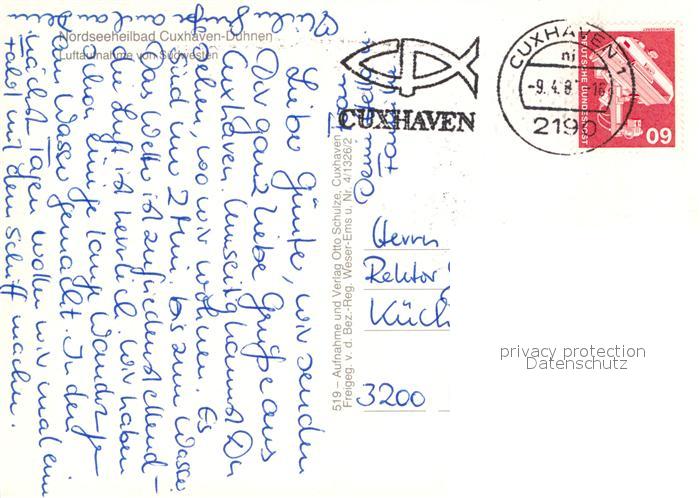 Nordseeheilbad Cuxhaven-Duhnen
Luftaufnahme von Südwesten
Lieber Günter, wir senden
Dir ganz liebe Grüße aus
Cuxhaven. Umseitig kannst Du
sehen, wo wir wohnen. Es
sind nur 2 Min. bis zum Wasser
Das Wetter ist zufriedenstellend –
die Luft ist herrlich. Wir haben
schon einige lange
am Wasser gemacht. In den
nächst. Tagen wollen wir mal eine
mit dem Schiff machen.
519 – Aufnahme und Verlag Otto Schulze, Cuxhaven
Freigeg. v. d. Bez.-Reg. Weser-Ems u. Nr. 4/1326/2
CUXHAVEN
CUXHAVEN 1
-9.4.8 -16
2190
DEUTSCHE BUNDESPOST
60
Herrn
Rektor
Küch
3200
privacy protection
Datenschutz